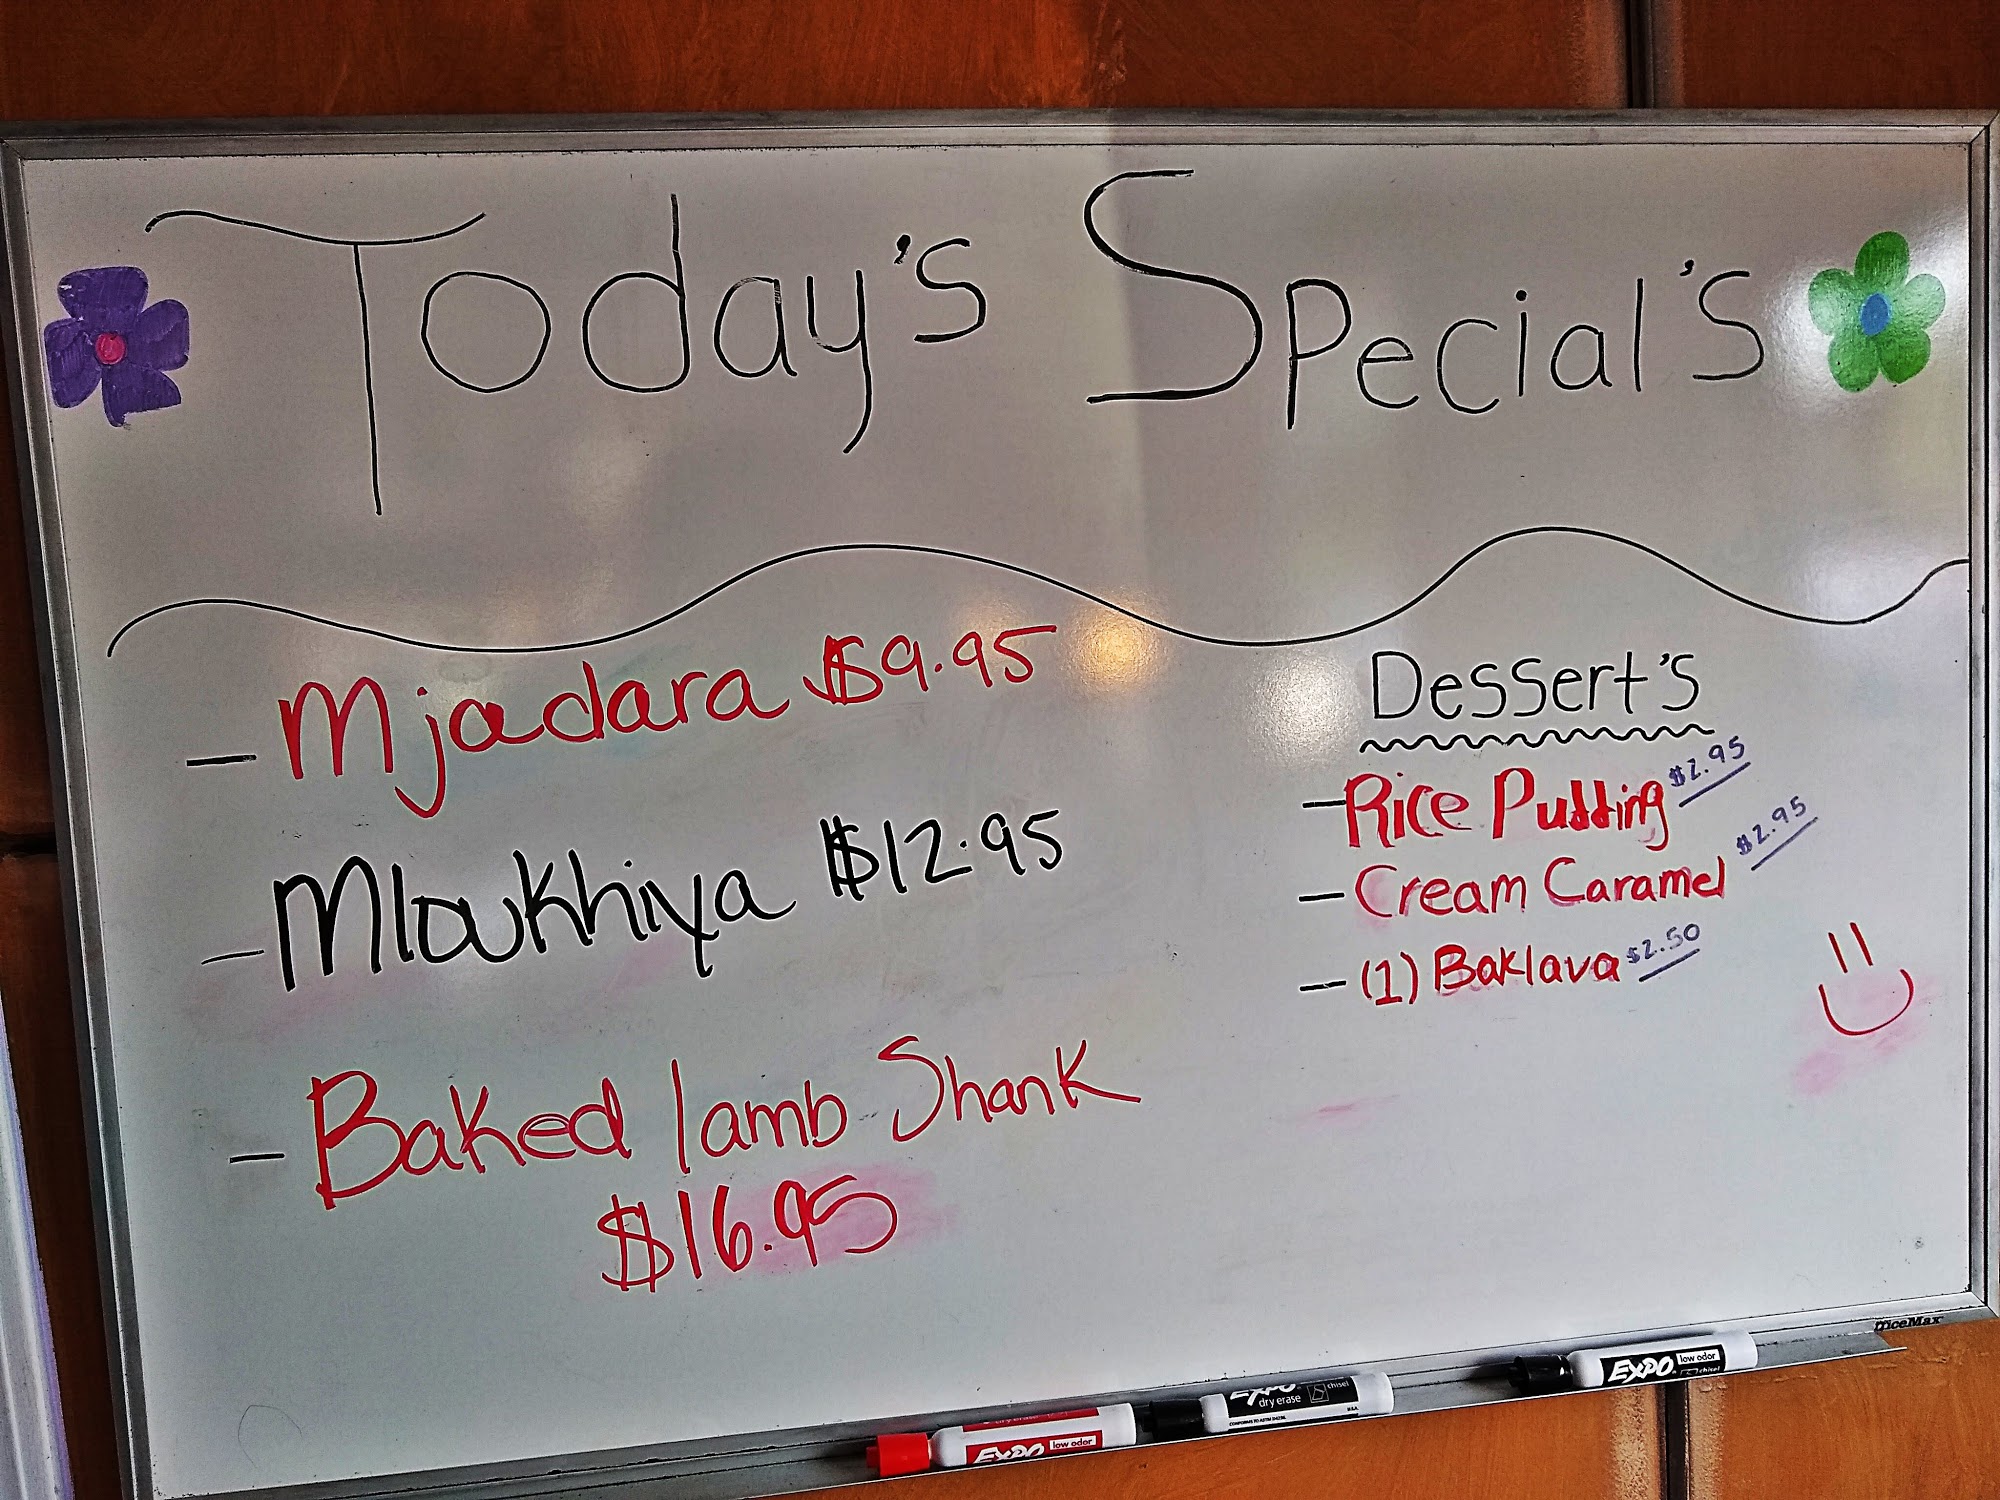 Today's Special's
- Mjadara $9.95
- Mloukhiya $12.95
- Baked lamb Shank
$16.95
Dessert's
- Rice Pudding $2.95
- Cream Caramel $2.95
- (1) Baklava $2.50
OfficeMax
EXPO low odor
chisel
EXPO chisel
dry erase
dry erase
EXPO low odor